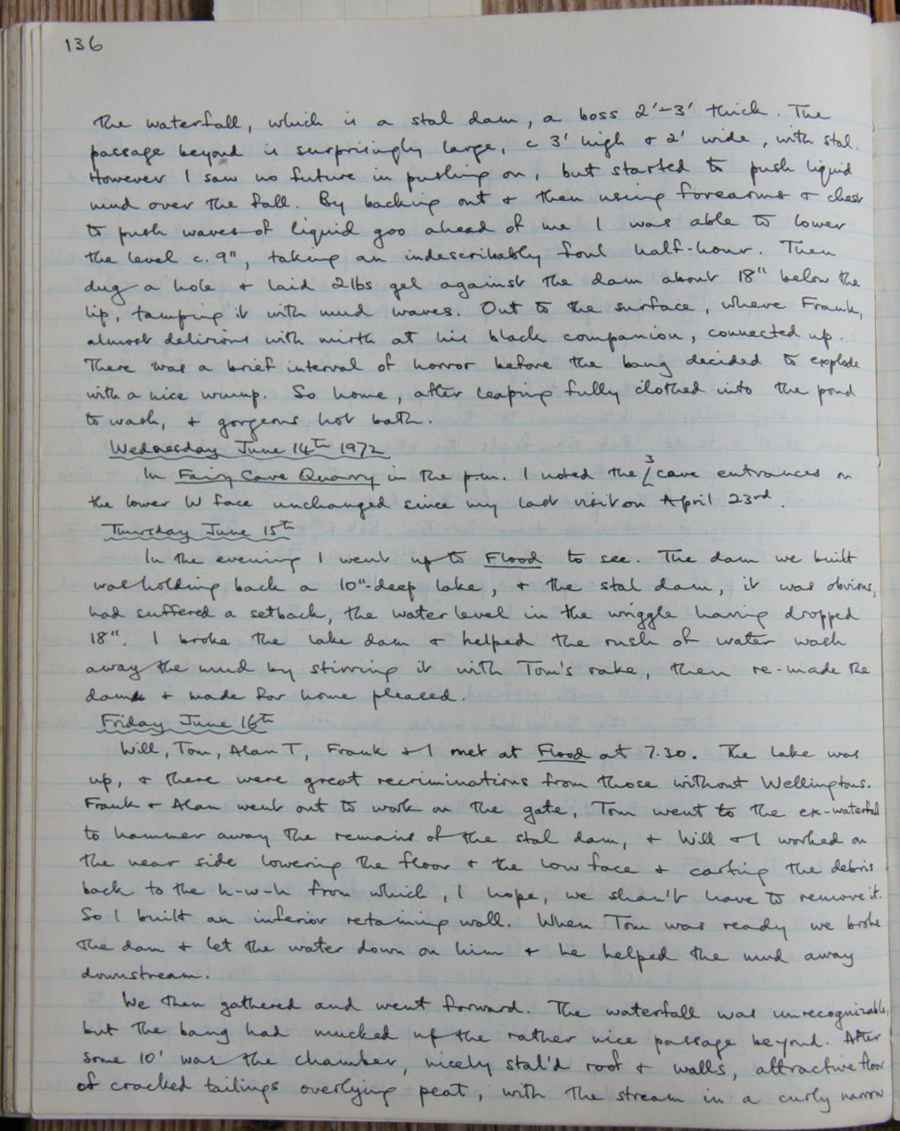 136
the waterfall, which is a stal dam, a boss 2'-3' thick. The
passage beyond is surprisingly large, c 3' high & 2' wide, with stal.
However I saw no future in pushing on, but started to push liquid
mud over the fall. By backing out & then using forearms & chest
to push waves of liquid goo ahead of me I was able to lower
the level c. 9", taking an indescribably foul half-hour. Then
dug a hole & laid 2lbs gel against the dam about 18" below the
lip, tamping it with mud waves. Out to the surface, where Frank,
almost delirious with mirth at his black companion, connected up.
There was a brief interval of horror before the bang decided to explode
with a nice wump. So home, after leaping fully clothed into the pond
to wash, & gorgeous hot bath.
Wednesday June 14th 1972
In Fairy Cave Quarry in the p.m. I noted the 3 cave entrances on
the lower W face unchanged since my last visit on April 23rd.
Thursday June 15th
In the evening I went up to Flood to see. The dam we built
was holding back a 10"-deep lake, & the stal dam, it was obvious,
had suffered a setback, the water level in the wriggle having dropped
18". I broke the lake dam & helped the rush of water wash
away the mud by stirring it with Tom's rake, then re-made the
dam & made for home pleased.
Friday June 16th
Will, Tom, Alan T, Frank & I met at Flood at 7.30. The lake was
up, & there were great recriminations from those without Wellingtons.
Frank & Alan went out to work on the gate, Tom went to the ex-waterfall
to hammer away the remains of the stal dam, & Will & I worked on
the near side lowering the floor & the low face & carting the debris
back to the h-w-h from which, I hope, we shan't have to remove it.
So I built an inferior retaining wall. When Tom was ready we broke
the dam & let the water down on him & he helped the mud away
downstream.
We then gathered and went forward. The waterfall was unrecognizable,
but the bang had mucked up the rather nice passage beyond. After
some 10' was the chamber, nicely stal'd roof & walls, attractive floor
of cracked tailings overlying peat, with the stream in a curly narrow